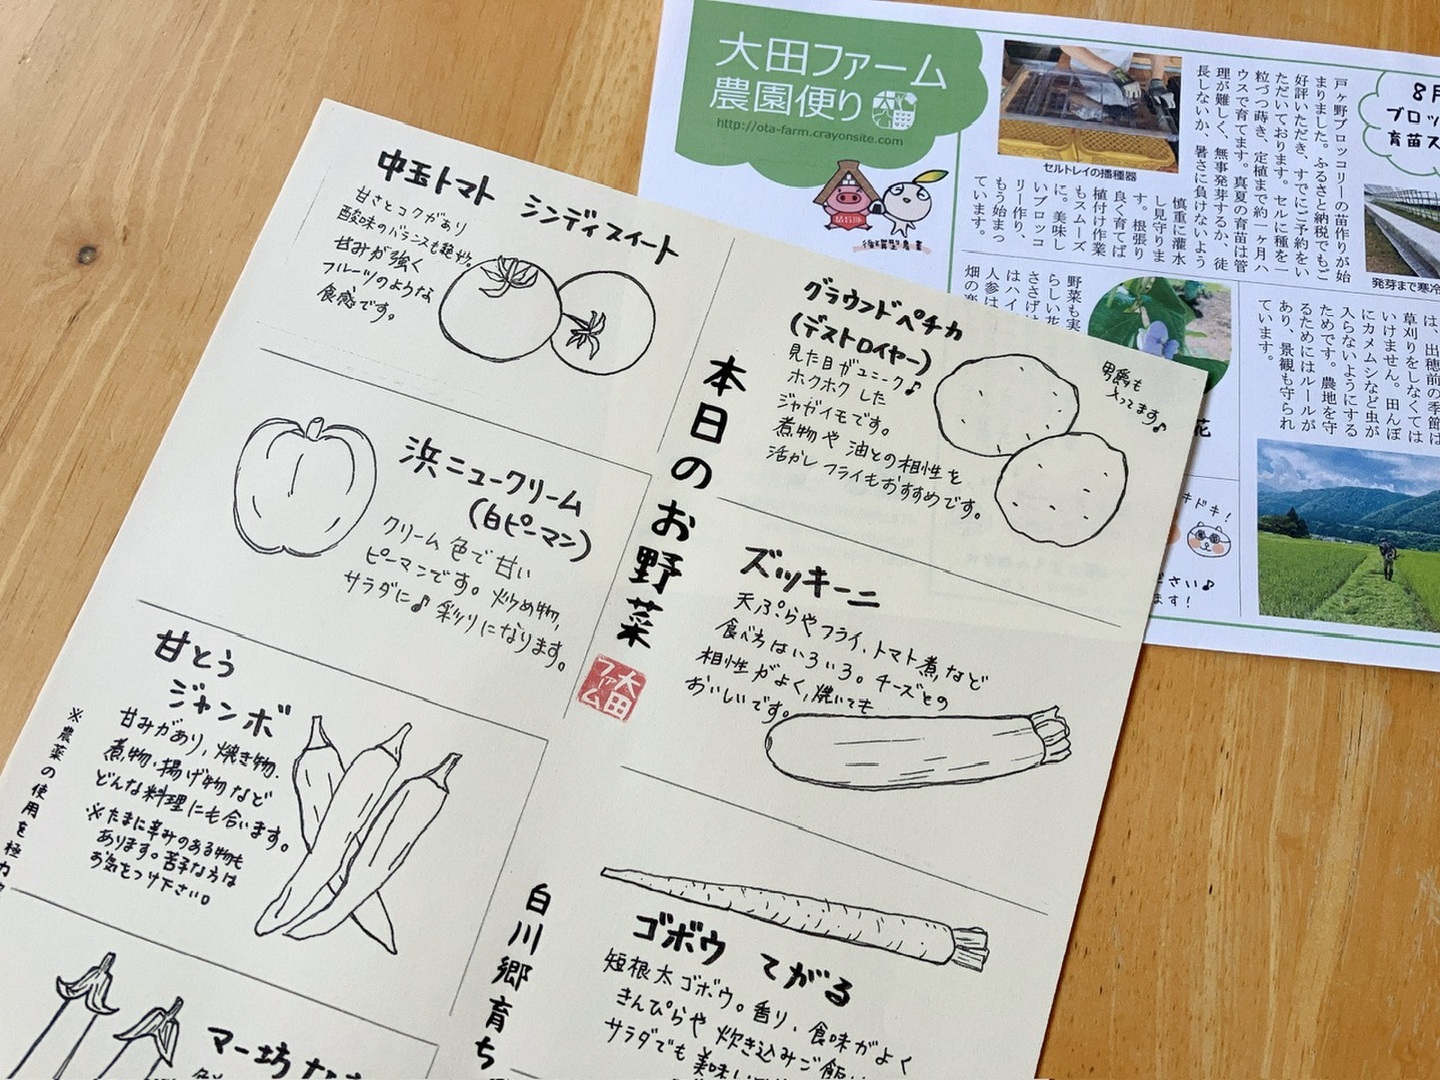 中玉トマト シンディスイート
甘さとコクがあり
酸味のバランスも絶妙。
甘みが強く
フルーツのような
食感です。
浜ニュークリーム
(白ピーマン)
クリーム色で甘い
ピーマンです。炒め物、
サラダに♪ 彩りになります。
甘とう
ジャンボ
甘みがあり、焼き物、
煮物・揚げ物など
どんな料理にも合います。
※たまに辛みのある物も
あります。苦手な方は
お気をつけ下さい。
※農薬の使用を極力
マー坊な
本日のお野菜
大田
ファーム
白川郷育ち
グラウンドペチカ
(デストロイヤー)
見た目がユニーク♪
ホクホクした
ジャガイモです。
煮物や油との相性を
活かしフライもおすすめです。
男爵も
入ってます♪
ズッキーニ
天ぷらやフライ、トマト煮など
食べ方はいろいろ。チーズとの
相性がよく、焼いても
おいしいです。
ゴボウ てがる
短根太ゴボウ。香り、食味がよく
きんぴらや炊き込みご飯
サラダでも美味しい
大田ファーム
農園便り
http://ota-farm.crayonsite.com
セルトレイの播種器
戸ヶ野ブロッコリーの苗作りが始
まりました。ふるさと納税でもご
好評いただき、すでにご予約をい
ただいております。セルに種を一
粒づつ蒔き、定植まで約一ヶ月ハ
ウスで育てます。真夏の育苗は管
理が難しく、無事発芽するか、徒
長しないか、暑さに負けないよう
慎重に灌水
し見守りま
す。根張り
良く育てば
植付け作業
もスムーズ
に。美味し
いブロッコ
リー作り、
もう始まっ
ています。
8月
ブロッ
育苗ス
発芽まで寒冷
野菜も実
らしい花
ささげは
はハイ
人参は
畑の楽
花
は、出穂前の季節は
草刈りをしなくては
いけません。田んぼ
にカメムシなど虫が
入らないようにする
ためです。農地を守
るためにはルールが
あり、景観も守られ
ています。
キドキ!
さい♪
ます!